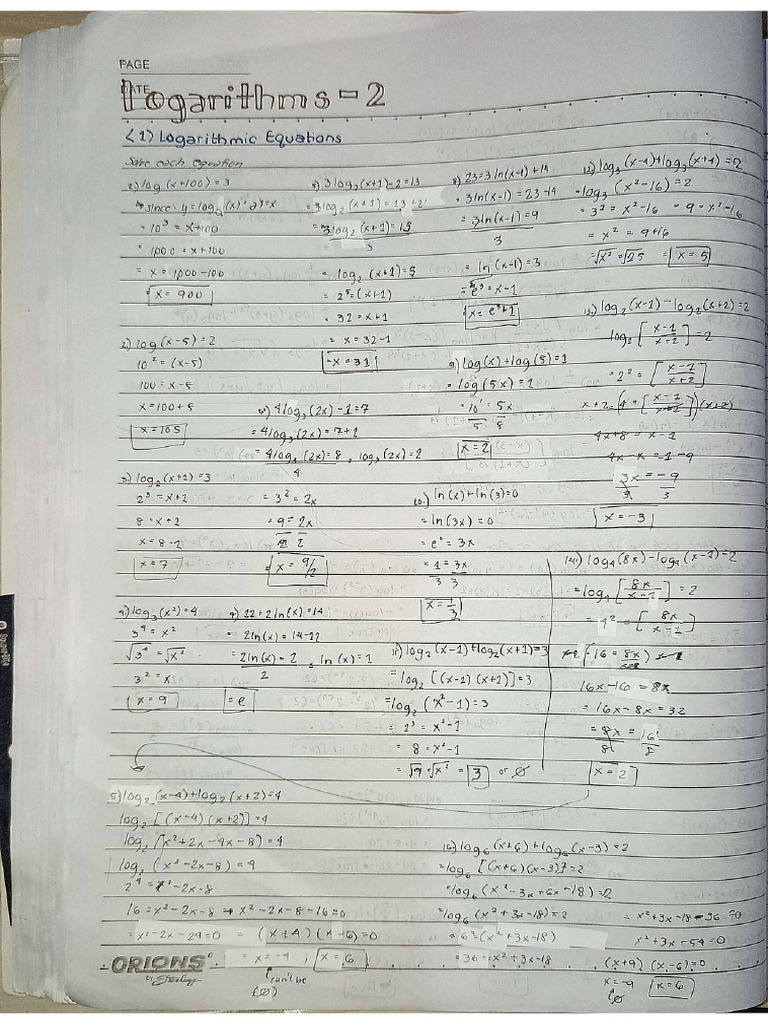 PAGE
DATE
Logarithms-2
<1) Logarithmic Equations
Solve each equation
1) log (x+100) = 3
y = log₂(x) · 2^y = x
= 10³ = x+100
= 1000 = x+100
= x = 1000-100
x = 900
2) log (x-5) = 2
10² = (x-5)
100 = x-5
x = 100+5
x = 105
3) log₂(x+1) = 3
2³ = x+2
8 = x+2
x = 8-2
x = 7
4) log₃(x²) = 4
3⁴ = x²
√3⁴ = √x²
3² = x
x = 9
5) 3log₂(x+1)-2 = 13
= 3log₂(x+1) = 13+2
3log₂(x+1) = 15
3
= log₂(x+1) = 5
= 2⁵ = (x+1)
= 32 = x+1
= x = 32-1
= x = 31
6) 4log₃(2x)-1 = 7
= 4log₃(2x) = 7+1
= 4log₃(2x) = 8 = log₃(2x) = 2
4
= 3² = 2x
= 9 = 2x
2 2
= x = 9/2
7) 12+2ln(x) = 14
= 2ln(x) = 14-12
= 2ln(x) = 2 = ln(x) = 1
2
= e
8) 23 = 3ln(x-1)+14
= 3ln(x-1) = 23-14
3ln(x-1) = 9
3
= ln(x-1) = 3
= e³ = x-1
x = e³+1
9) log(x)+log(5) = 1
= log(5x) = 1
= 10¹ = 5x
5 5
x = 2
10.) ln(x)+ln(3) = 0
= ln(3x) = 0
= e° = 3x
= 1 = 3x
3 3
x = 1/3
11) log₂(x-1)+log₂(x+1) = 3
= log₂[(x-1)(x+1)] = 3
= log₂(x²-1) = 3
= 2³ = x²-1
= 8 = x²-1
= √9 = √x² = 3 or ∅
12) log₃(x-4)+log₃(x+4) = 2
= log₃(x²-16) = 2
= 3² = x²-16 = 9 = x²-16
= x² = 9+16
= √x² = √25 = x = 5
13) log₂(x-1)-log₂(x+2) = 2
log₂[x-1/x+2] = 2
= 2² = [x-1/x+2]
x+2 = (4 = [x-1/x+2])(x+2)
4x+8 = x-1
4x-x = -1-9
3x = -9
3 3
x = -3
14) log₄(8x)-log₄(x-1) = 2
= log₄[8x/x-1] = 2
= 4² = [8x/x-1]
(16 = 8x) x-1
16x-16 = 8x
= 16x-8x = 32
= 8x = 16
8 8
x = 2
15) log₂(x-4)+log₂(x+2) = 4
log₂[(x-4)(x+2)] = 4
log₂[x²+2x-4x-8) = 4
log₂(x²-2x-8) = 4
2⁴ = x²-2x-8
16 = x²-2x-8 → x²-2x-8-16 = 0
= x²-2x-24 = 0 = (x+4)(x-6) = 0
= x = -4 ; x = 6
can't be
(∅)
16) log₆(x+6)+log₆(x-3) = 2
= log₆[(x+6)(x-3)] = 2
= log₆(x²-3x+6x-18) = 2
= log₆(x²+3x-18) = 2
= 6² = (x²+3x-18)
= 36 = x²+3x-18
= x²+3x-18-36 = 0
x²+3x-54 = 0
(x+9)(x-6) = 0
x = -9 x = 6
∅
ORIONS
by Sterling